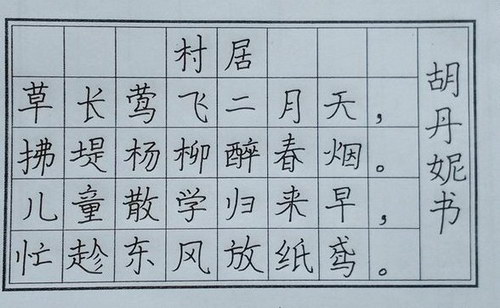 村居
草长莺飞二月天，
拂堤杨柳醉春烟。
儿童散学归来早，
忙趁东风放纸鸢。
胡丹妮书